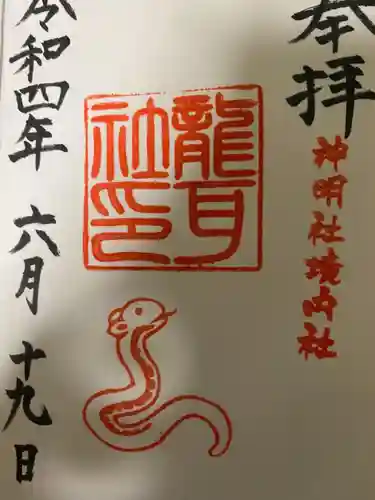 奉拝
神明社境内社
龍耳
社印
令和四年 六月 十九日